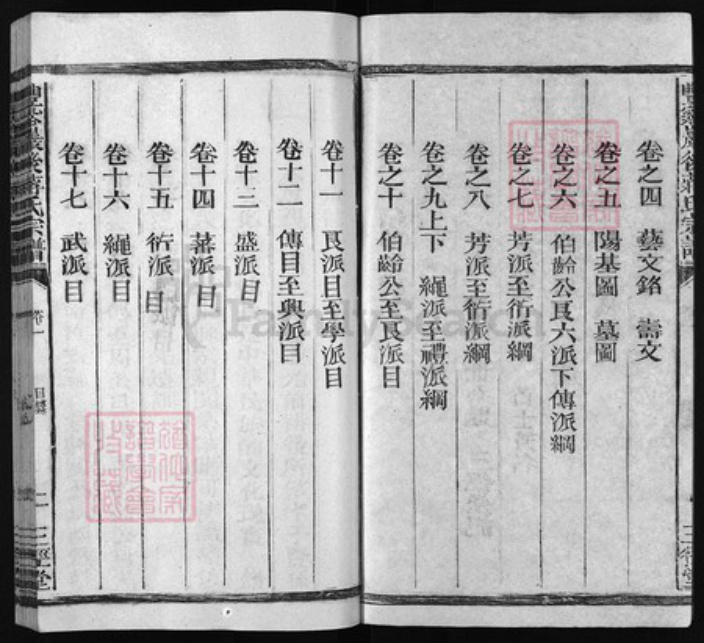 卷之四 藝文銘 壽文
卷之五 陽基圖 墓圖
卷之六 伯齡公良六派下傳派綱
卷之七 芳派至衍派綱
卷之八 芳派至衍派綱
卷之九上下 繩派至禮派綱
卷之十 伯齡公至良派目
卷十一 良派目至學派目
卷十二 傳目至興派目
卷十三 盛派目
卷十四 蕃派目
卷十五 衍派目
卷十六 繩派目
卷十七 武派目
後蔣氏宗譜
卷一
目錄
二
三徑堂
FamilySearch